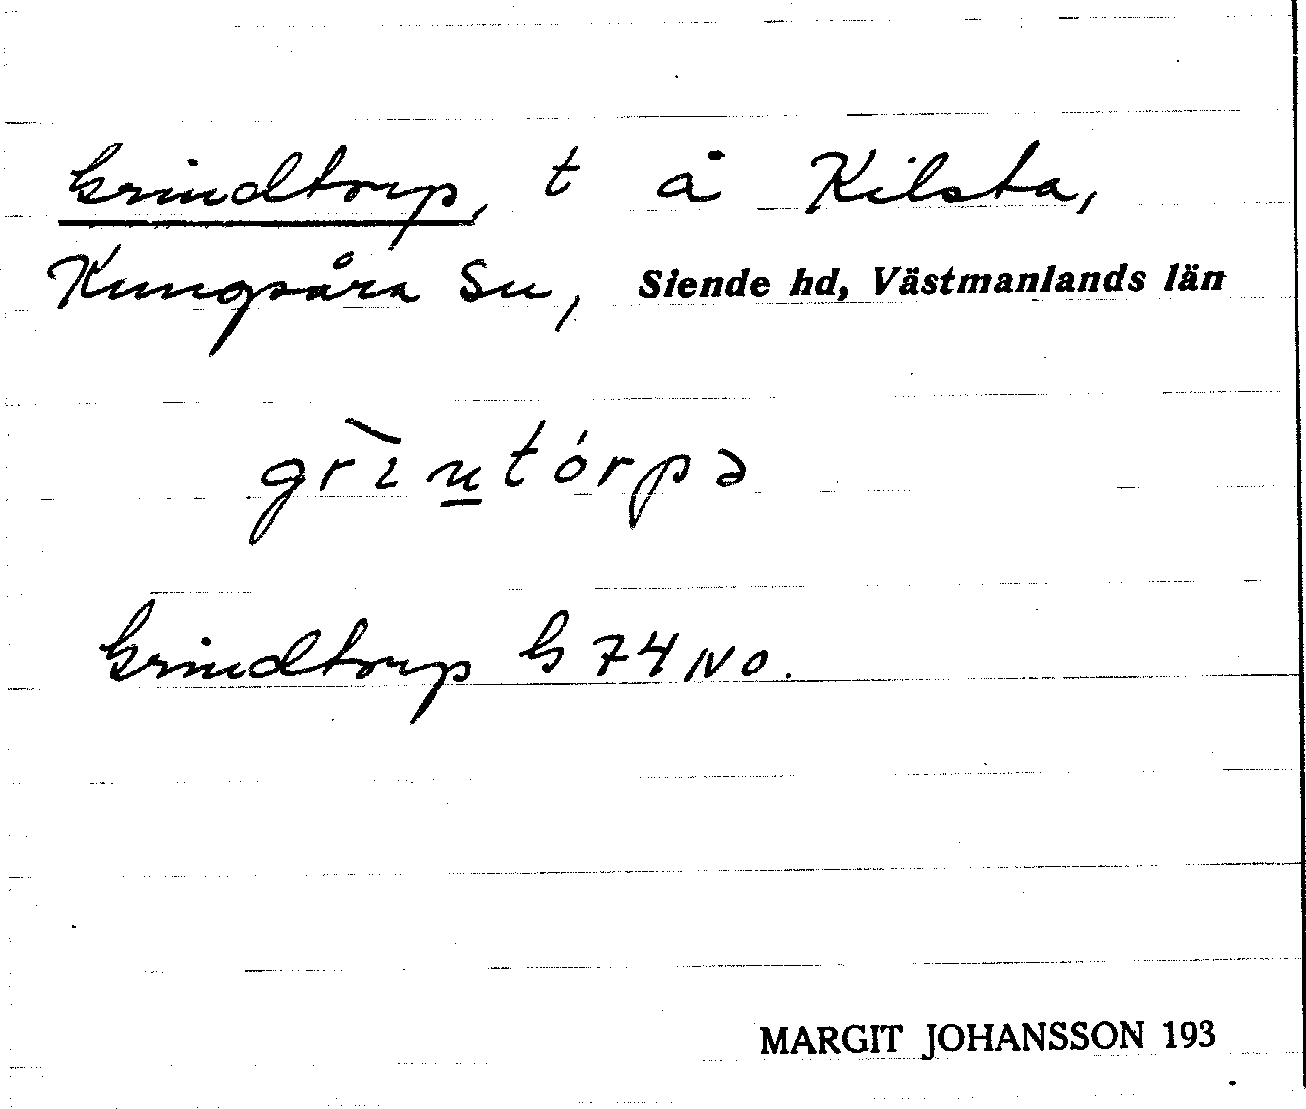 Grindtorp, t å Kilsta,
Kungsåra Sn, Siende hd, Västmanlands län
grìn̲tórpə
Grindtorp G 74 NO.
MARGIT JOHANSSON 193